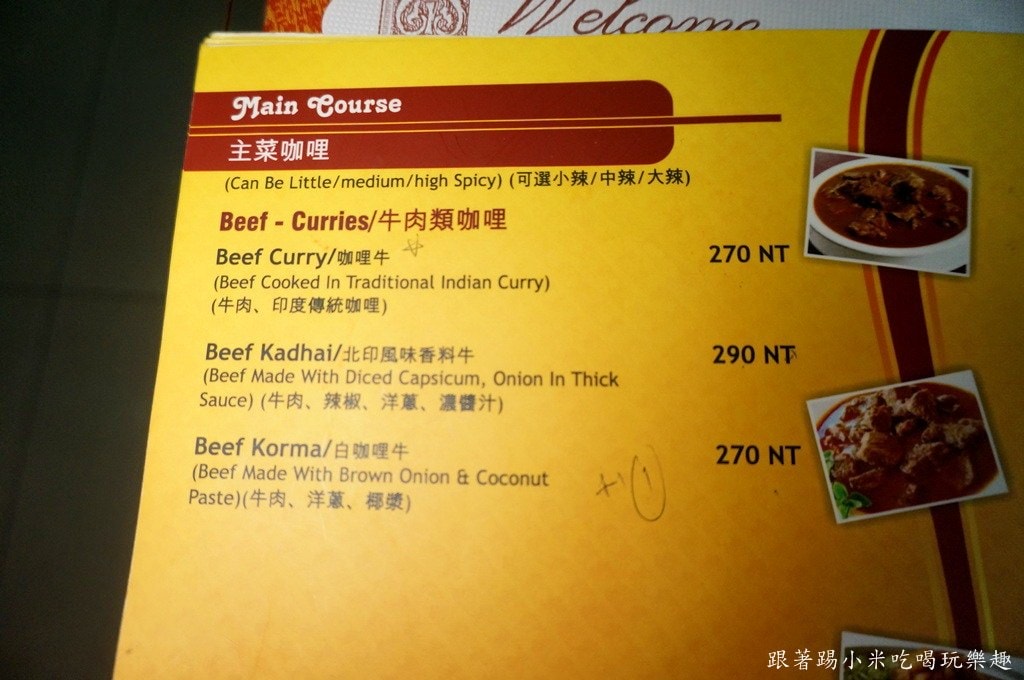 Welcome
Main Course
主菜咖哩
(Can Be Little/medium/high Spicy) (可選小辣/中辣/大辣)
Beef - Curries/牛肉類咖哩
Beef Curry/咖哩牛 270 NT
(Beef Cooked In Traditional Indian Curry)
(牛肉、印度傳統咖哩)
Beef Kadhai/北印風味香料牛 290 NT
(Beef Made With Diced Capsicum, Onion In Thick
Sauce) (牛肉、辣椒、洋蔥、濃醬汁)
Beef Korma/白咖哩牛 270 NT
(Beef Made With Brown Onion & Coconut
Paste)(牛肉、洋蔥、椰漿)
跟著踢小米吃喝玩樂趣